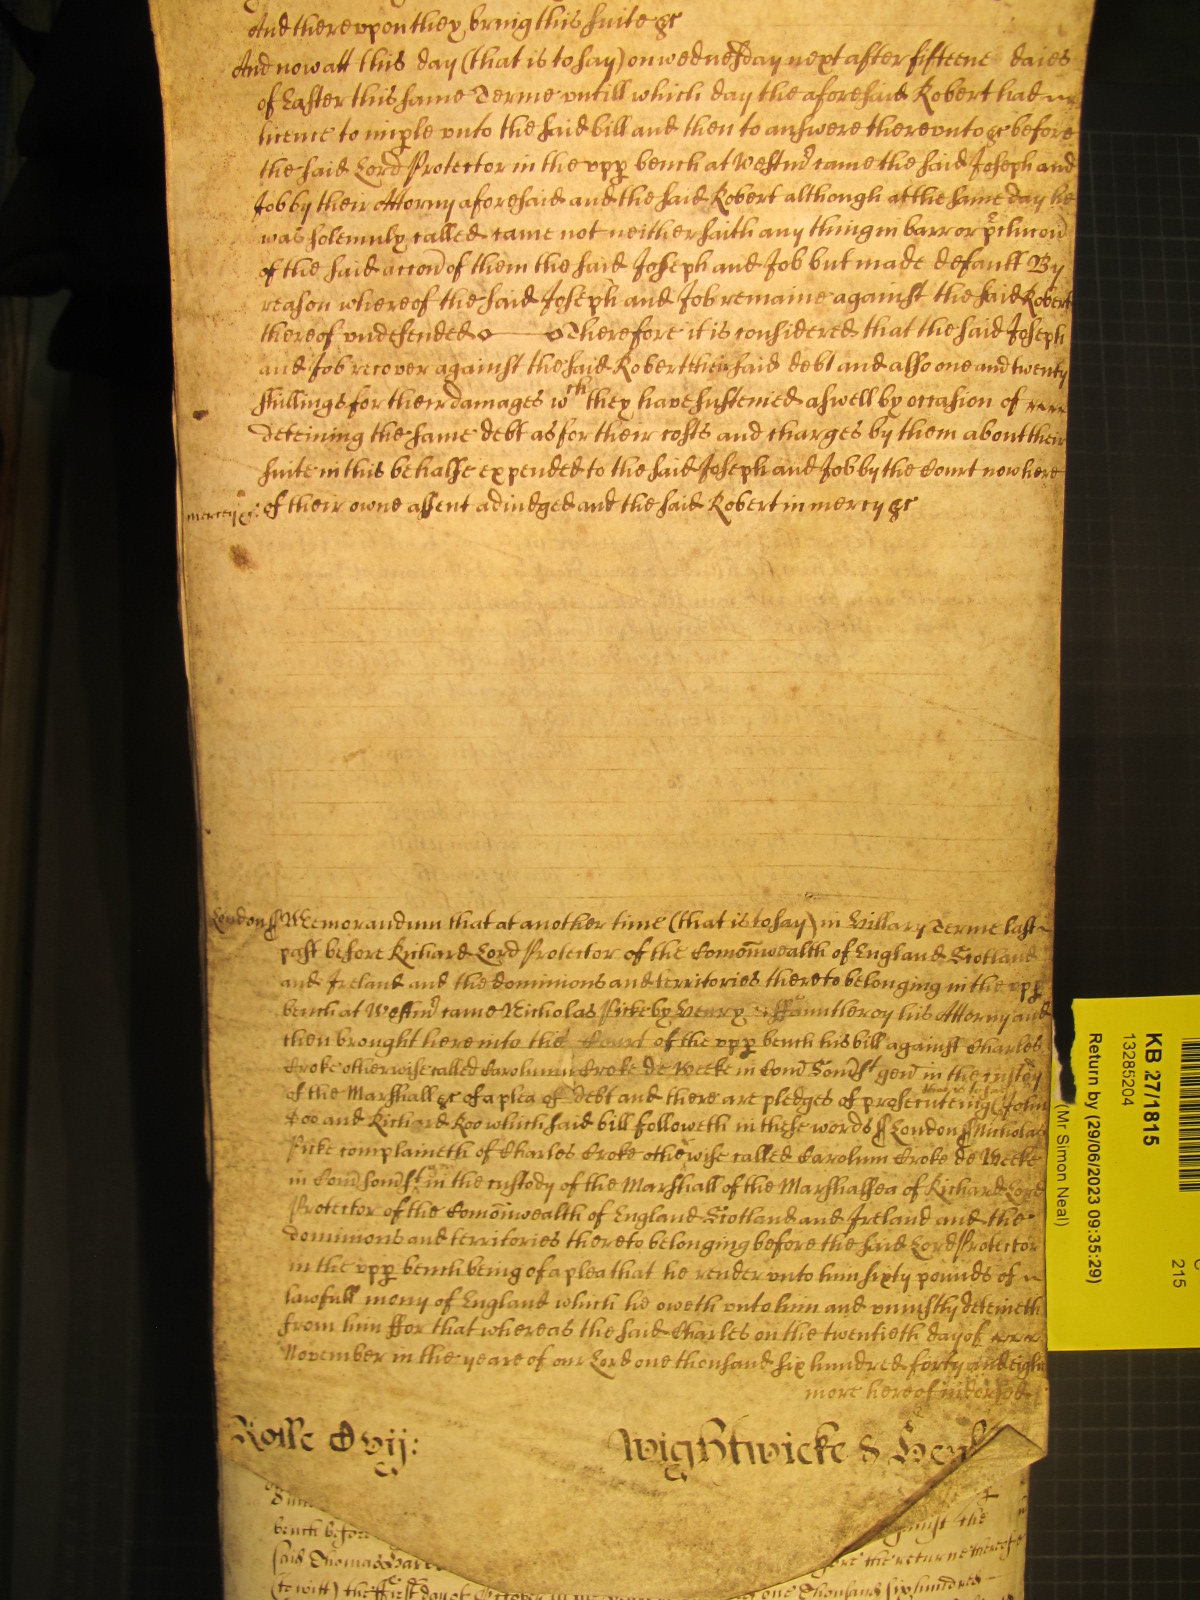 And thereupon they bring this suite &c
And now att this day (that is to say) on wednesday next after fifteene daies
of Easter this same Terme untill which day the aforesaid Robert had
licence to imple unto the said bill and then to answere thereunto &c before
the said Lord Protector in the upp bench at Westmr came the said Joseph and
Job by their Attorny aforesaid and the said Robert although at the same day he
was solemnly called came not neither saith any thing in barr or
of the said accon of them the said Joseph and Job but made default By
reason whereof the said Joseph and Job remaine against the said Robert
thereof undefended Therefore it is considered that the said Joseph
and Job recover against the said Robert their said debt and also one and twenty
shillings for their damages wch they have susteined aswell by occasion of
deteining the same debt as for their costs and charges by them about their
suite in this behalfe expended to the said Joseph and Job by the Court now here
mercy &c: of their owne assent adiudged and the said Robert in mercy &c
London ss Memorandum that at another time (that is to say) in Hillary Terme last
past before Richard Lord Protector of the Comonwealth of England Scotland
and Ireland and the dominions and territories thereto belonging in the upp
bench at Westmr came Nicholas Picke by Henry ffauntleroy his Attorny and
then brought here into the Court of the upp bench his bill against Charles
Croke otherwise called Carolum Croke de Weeke in Com Somst gen in the custody
of the Marshall &c of a plea of debt and there are pledges of prosecuteing John
Doo and Richard Roo which said bill followeth in these words ss London ss Nicholas
Picke complaineth of Charles Croke otherwise called Carolum Croke de Weeke
in Com Somst gen in the custody of the Marshall of the Marshalsea of Richard Lord
Protector of the Comonwealth of England Scotland and Ireland and the
dominions and territories thereto belonging before the said Lord Protector
in the upp bench being of a plea that he render unto him sixty pounds of
lawfull mony of England which he oweth unto him and uniustly deteineth
from him ffor that whereas the said Charles on the twentieth day of
November in the yeare of our Lord one thousand six hundred forty and eight
more hereof
Rolle D vij: Wightwicke &
bench before against the
said Thomas the returne thereof
(to witt) the first day of October one Thousand six hundred
KB 27/1815
13285204
Return by (29/06/2023 09:35:29)
(Mr Simon Neal)
215